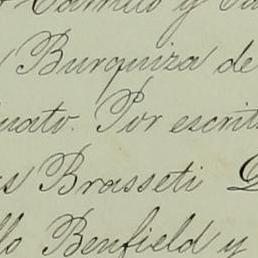 Camilo y
Burquiza de
uato. Por escrit
s Brasseti D
llo Benfield y